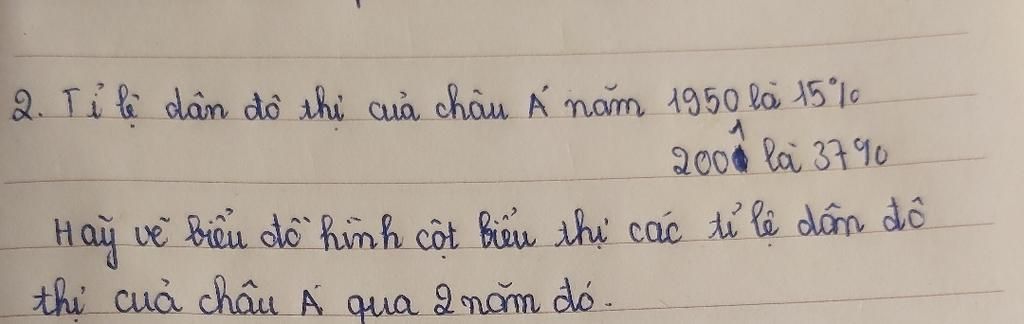 2. Tỉ lệ dân đô thị của châu Á năm 1950 là 15%
2001 là 37%
Hãy vẽ biểu đồ hình cột biểu thị các tỉ lệ dân đô
thị của châu Á qua 2 năm đó.